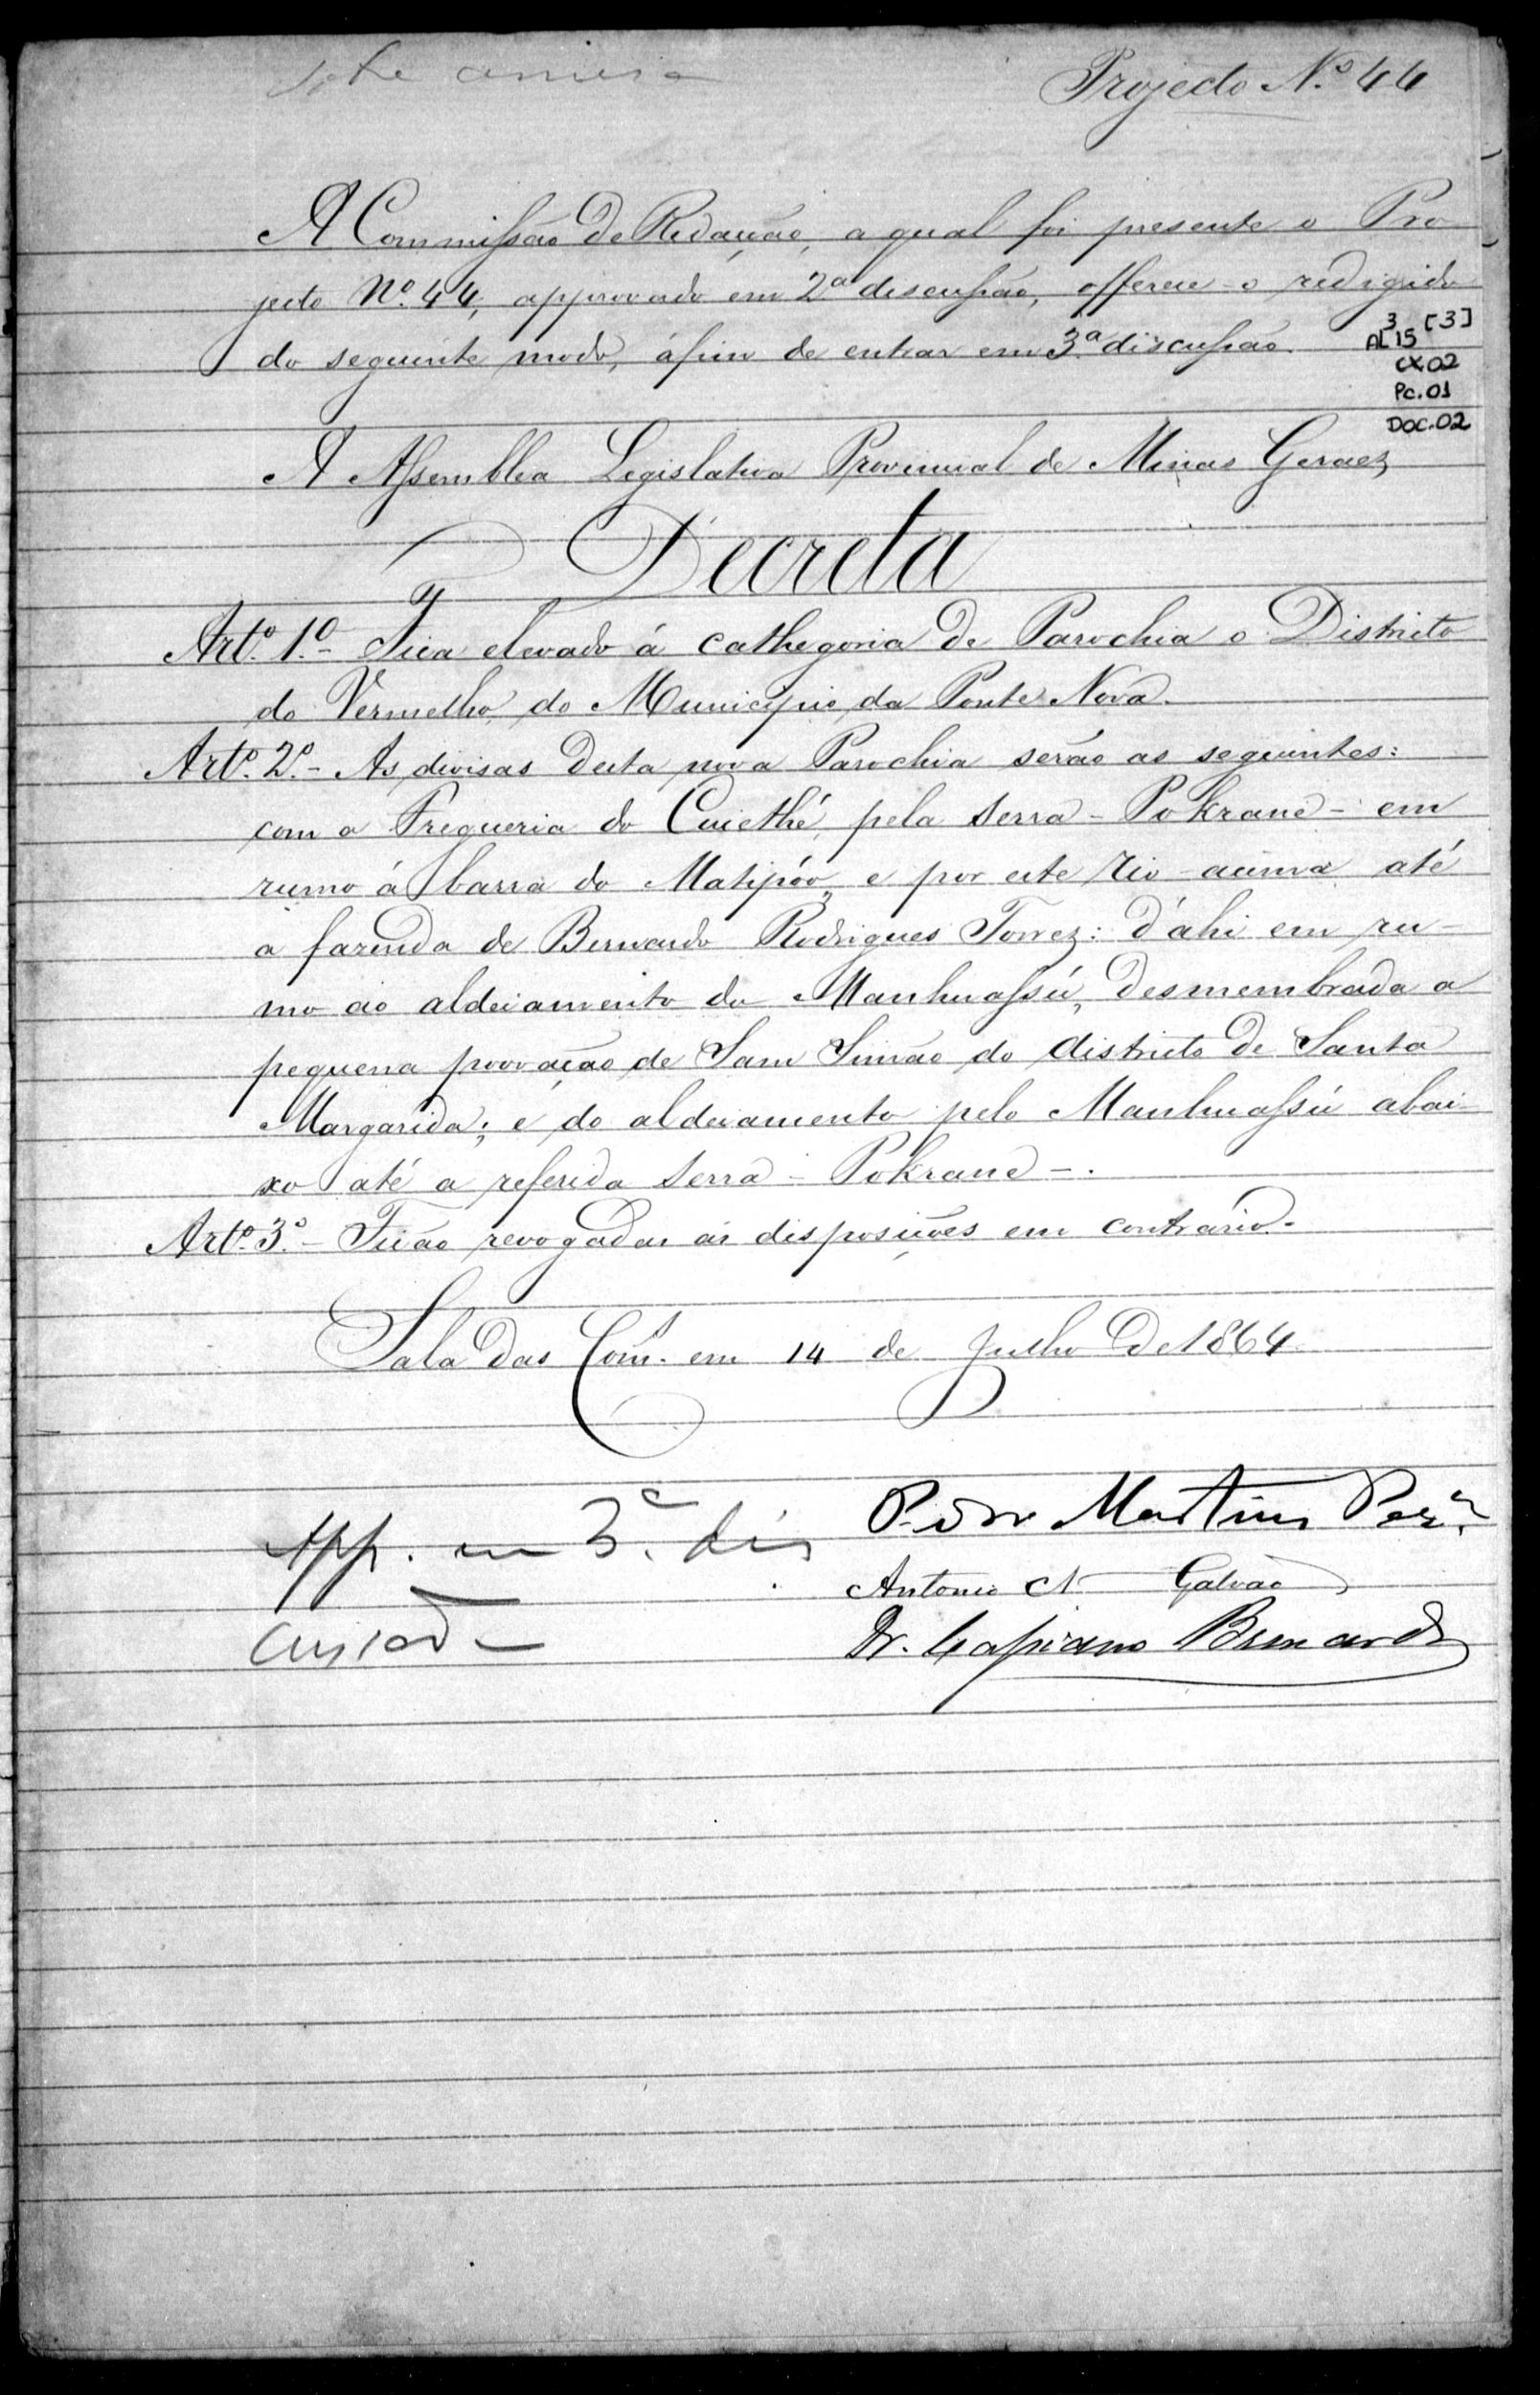 Projecto N.º 44
A Commissão de Redacção, a qual foi presente o Pro
jecto Nº. 44, approvado em 2ª discussão, offerece-o redigido
do seguinte modo, áfim de entrar em 3.ª discussão.
3 [3]
AL 15
CX.02
Pc.01
DOC.02
A Assemblea Legislativa Provincial de Minas Geraez
Decreta
Artº. 1º.- Fica elevado á cathegoria de Parochia o Districto
do Vermelho, do Municipio da Ponte Nova.
Artº. 2º.- As divisas desta nova Parochia serão as seguintes:
com a Fregueria do Cuiethé, pela serra - Pokrane - em
rumo á barra do Matipóo, e por este rio acima até
a fazenda de Bernardo Rodrigues Torrez: d'ahi em ru-
mo ao aldeiamento do Manhuassú, desmembrada a
pequena povoação de Sam Simão do districto de Santa
Margarida; e do aldeiamento pelo Manhuassú abai-
xo até a referida serra - Pokrane -.
Artº. 3º.- Ficão revogadas as disposições em contrario.
Sala das Com.s em 14 de Julho de 1864
App. em 3ª. dis
cussão
Pedro Martins Per.ª
Antonio A. Galvão
Dr. Cassiano Bernardo